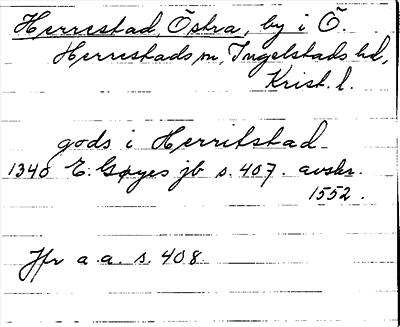 Herrestad, Östra, by i Ö.
Herrestads sn, Ingelstads hd,
Krist. l.
gods i Herritstad
1340 E. Gøyes jb s. 407. avskr.
1552.
Jfr a.a. s. 408.